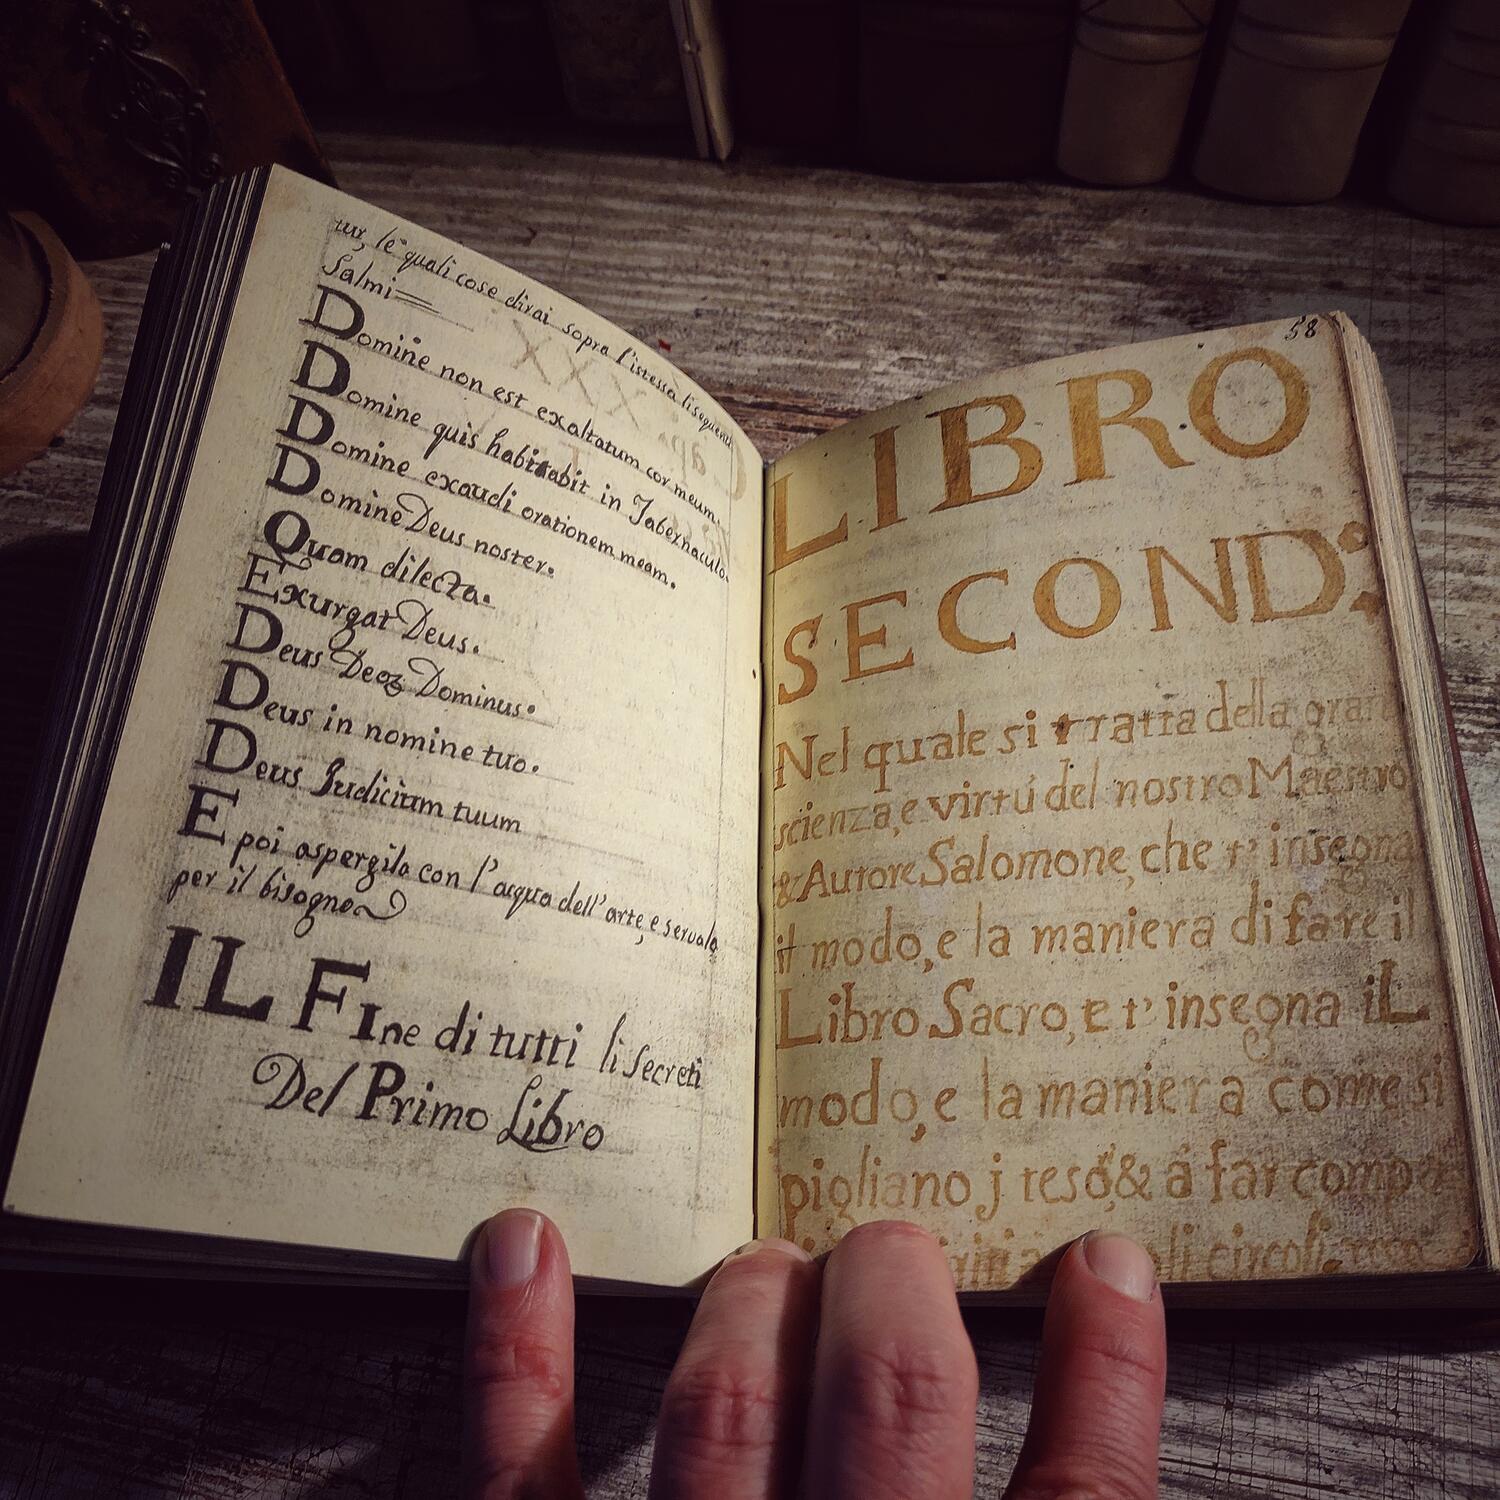 tur, le quali cose dirai sopra l'istessa li sequenti
Salmi=
Domine non est exaltatum cor meum.
Domine quis habitabit in Tabernaculo.
Domine exaudi orationem meam.
Domine Deus noster.
Quam dilecta.
Exurgat Deus.
Deus Deoꝝ Dominus.
Deus in nomine tuo.
Deus Judicium tuum
E poi aspergila con l'acqua dell'arte, e servala
per il bisogno
IL FIne di tutti li secreti
Del Primo Libro
58
LIBRO
SECONDº
Nel quale si tratta della gran
scienza, e virtú del nostro Maestro
& Autore Salomone, che t'insegna
il modo, e la maniera di fare il
Libro Sacro, e t'insegna iL
modo, e la maniera come si
pigliano j tesó & á far compa
circoli